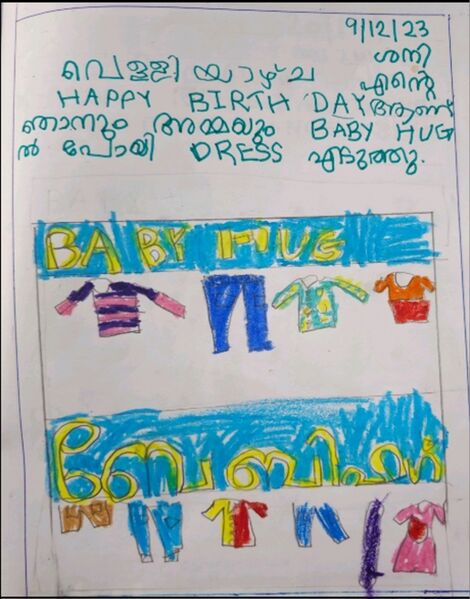 9/12/23
ശനി
വെള്ളിയാഴ്ച എന്റെ
HAPPY BIRTH DAY ആണ്
ഞാനും അമ്മയും BABY HUG
ൽ പോയി DRESS എടുത്തു.
BABY HUG
ബേബിഹഗ്